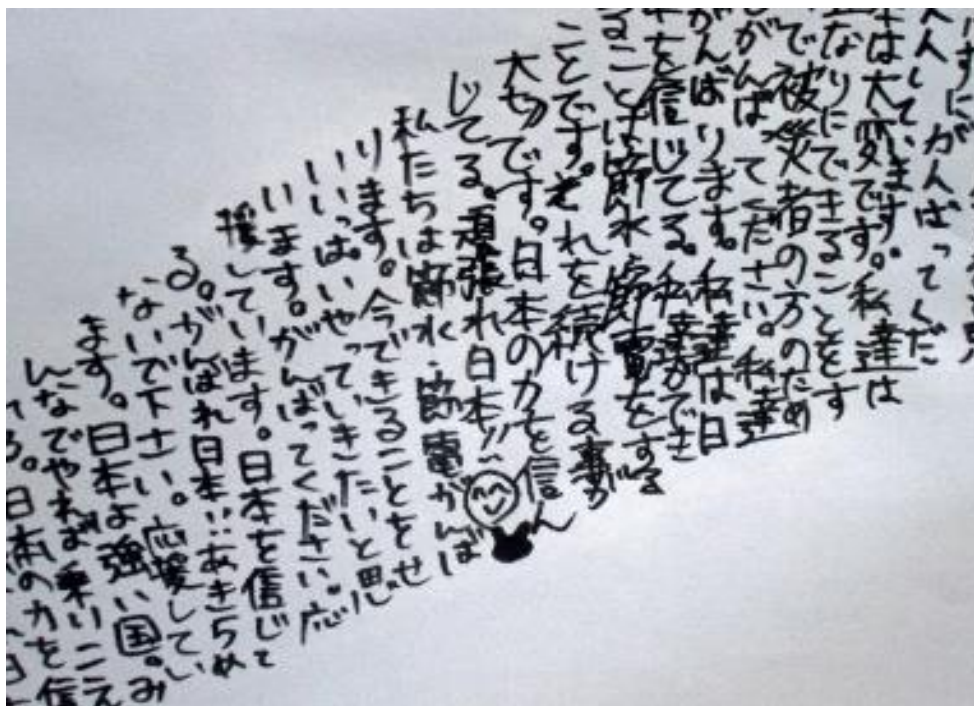 がんばってくだ
人していきます。
は大変です。私達は
なりにできることをす
で被災者の方のため
がんばってください。私達
がんばります。私達は日
を信じてる。私達ができ
ることは節水、節電をする
ことです。それを続ける事が
大切です。日本の力を信
じてる。頑張れ日本!!
私たちは節水・節電がんば
ります。今できることをせ
いいっぱいやっていきたいと思
います。がんばってください。応
援しています。日本を信じて
る。がんばれ日本!!あきらめ
ないで下さい。応援してい
ます。日本は強い国。み
んなでやれば乗りこえ
る。日本の力を信